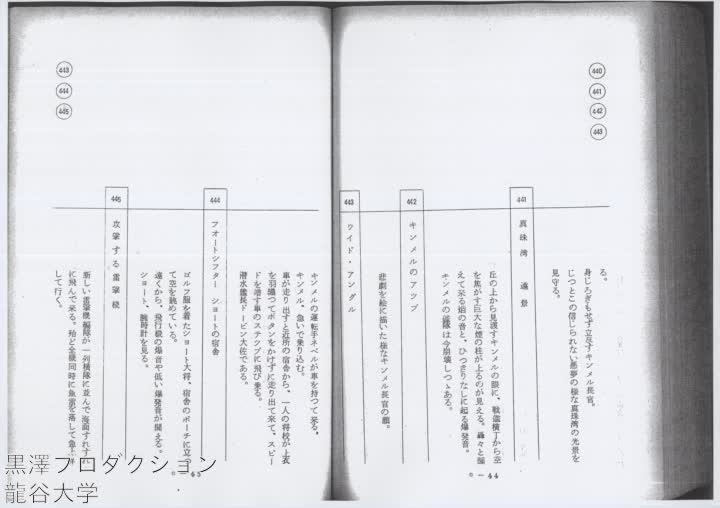 440
441
442
443
る。
身じろぎもせず立尽すキンメル長官。
じつとこの信じられない悪夢の様な真珠湾の光景を
見守る。
441
真珠湾 遠景
丘の上から見渡すキンメルの眼に、戦艦横丁から空
を焦がす巨大な煙の柱が上るのが見える。轟々と
えて来る焔の音と、ひつきりなしに起る爆発音。
キンメルの艦隊は今崩壊しつゝある。
442
キンメルのアツプ
悲劇を絵に描いた様なキンメル長官の顔。
443
ワイド・アングル
C-44
443
444
445
キンメルの運転手ネベルが車を持つて来る。
キンメル、急いで乗り込む。
車が走り出すと近所の宿舎から、一人の将校が上衣
を羽織つてボタンをかけずに走り出て来て、スピー
ドを増す車のステツプに飛び乗る。
潜水艦長ドービン大佐である。
444
フオートシフター ショートの宿舎
ゴルフ服を着たショート大将、宿舎のポーチに立つ
て空を眺めている。
遠くから、飛行機の爆音や低い爆発音が聞える。
ショート、腕時計を見る。
445
攻撃する雷撃機
新しい雷撃機編隊が一列横隊に並んで海面すれすれ
に飛んで来る。殆ど全機同時に魚雷を落して急上昇
して行く。
C-45
黒澤プロダクション
龍谷大学